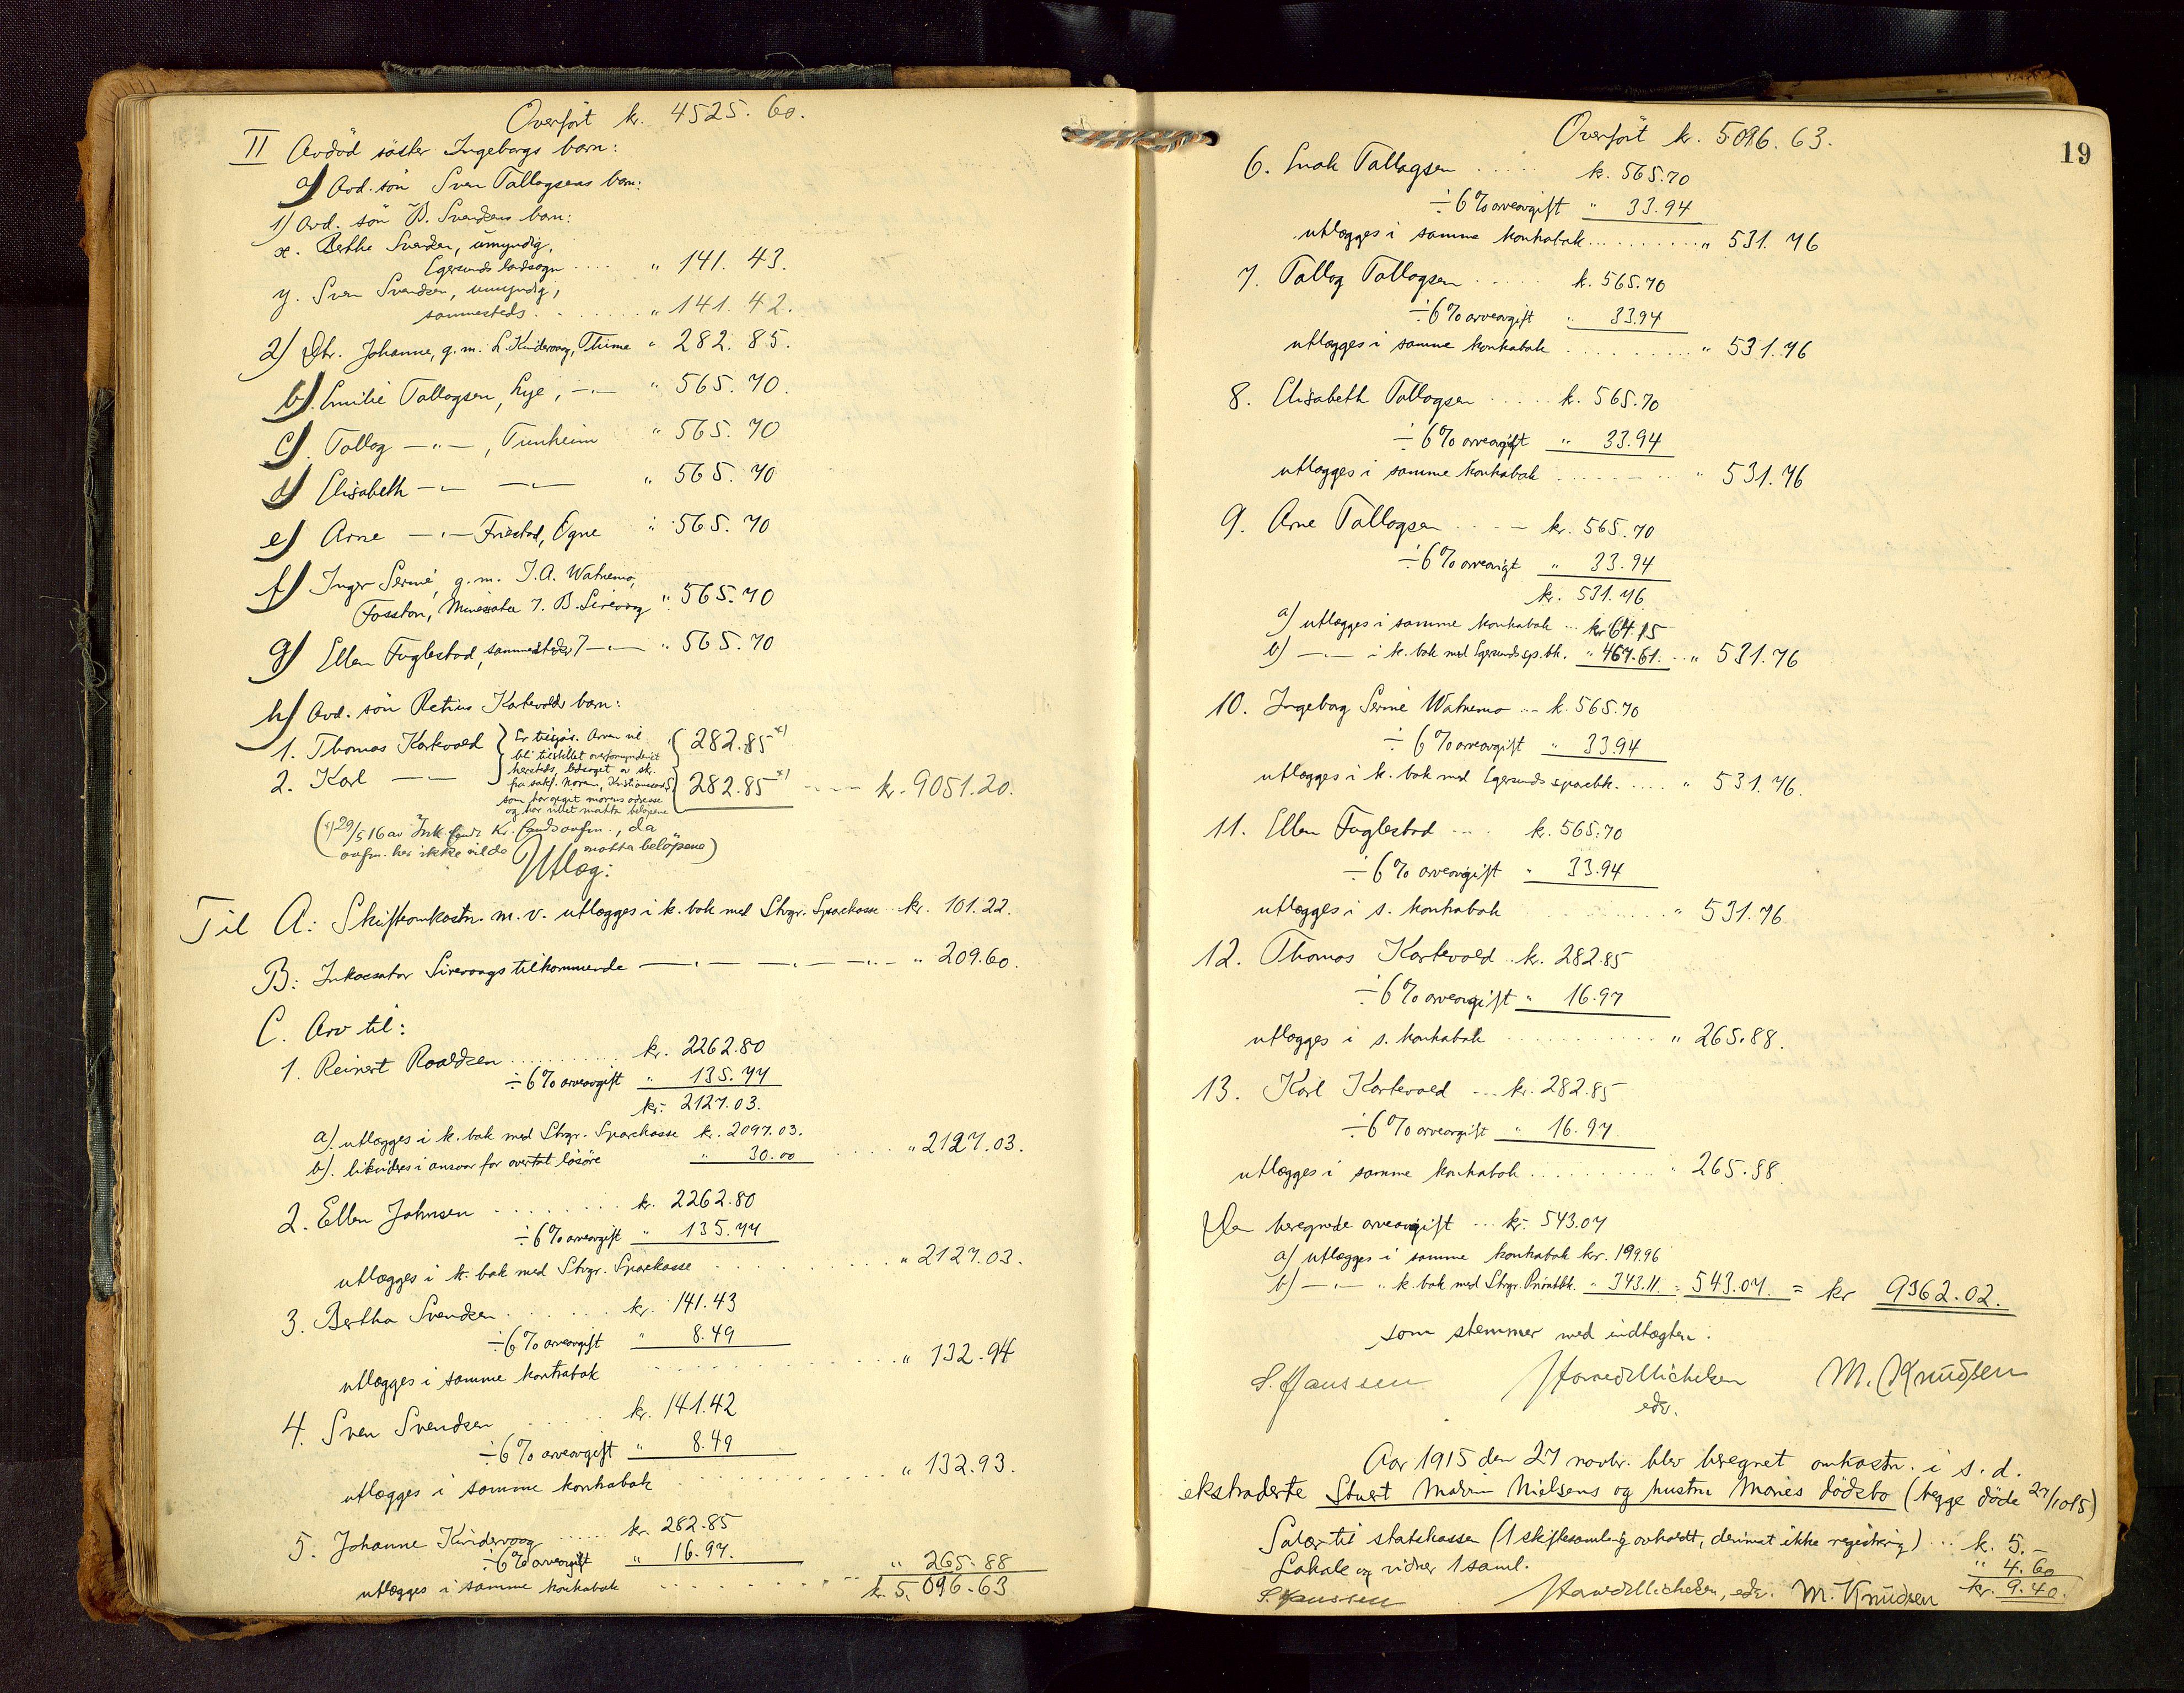 Overført kr. 4525.60.
II Avdöd söster Ingeborgs barn:
a) Avd. sön Sven Tallagsens barn:
1) Avd. sön B. Svendsens barn:
x. Bertha Svendsen, umyndig,
Egersunds ladsogn .... " 141.43.
y. Sven Svendsen, umyndig,
sammesteds. . ..... " 141.42.
2) Dtr. Johanne, g.m. L. Kvidevoog, Thime " 282.85.
b) Emilie Tallagsen, Lye, —"— " 565.70.
c) Tallag —"—, Tunheim " 565.70
d) Elisabeth —"— —"— " 565.70
e) Arne —"— Friestad, Ogne " 565.70
f) Inger Serine, g.m. J.A. Watnemo,
Fosston, Minesota J. B. Sirevoog " 565.70
g) Ellen Fuglestad, sammesteds 7 —"— " 565.70
h) Avd. sön Retius Kartevolds barn:
1. Thomas Kartevold } Er tilsjös. Arven vil { 282.85 x)
bli tilstillet overformynderiet
2. Karl —"— } hersteds, ledsaget av sk. { 282.85 x) --- kr. 9051.20.
fra sakf. Norem, Kristianssand
som har opgit morens adresse
og har villet motta beløpene
(x) 29/5 16 av Ink. sendt Kr. sands ovfm., da
ovfm. her ikke vilde motta belöpene)
Utlæg:
Til A: Skifteomkostn. m.v. utlægges i k. bok med Stvgr. Sparekasse kr. 101.22.
B: Inkassator Sirevoogs tilkommende —"— —"— —"— " 209.60.
C. Arv til:
1. Reinert Roaldsen .......... kr. 2262.80
÷6% arveavgift " 135.77
kr. 2127.03.
a). utlægges i k. bok med Stvgr. Sparekasse kr. 2097.03.
b). likvideres i ansvar for overtat lösöre " 30.00 ..... " 2127.03.
2. Ellen Johnsen ........ kr. 2262.80
÷6% arveavgift " 135.77
utlægges i k. bok med Stvgr. Sparekasse .......... " 2127.03.
3. Bertha Svendsen ...... kr. 141.43
÷6% arveavgift " 8.49
utlægges i samme kontrabok ............. " 132.94
4. Sven Svendsen ..... kr. 141.42
÷6% arveavgift " 8.49
utlægges i samme kontrabok ............. " 132.93.
5. Johanne Kvidevoog ..... kr. 282.85
÷6% arveavgift " 16.97.
utlægges i samme kontrabok ........... " 265.88
kr. 5.096.63
19
Overført kr. 5096.63.
6. Enok Tallagsen ..... kr. 565.70
÷6% arveavgift " 33.94
utlægges i samme kontrabok .......... " 531.76
7. Tallag Tallagsen ..... kr. 565.70
÷6% arveavgift " 33.94
utlægges i samme kontrabok ......... " 531.76
8. Elisabeth Tallagsen ..... kr. 565.70
÷6% arveavgift " 33.94
utlægges i samme kontrabok ......... " 531.76
9. Arne Tallagsen .... kr. 565.70
÷6% arveavgift " 33.94
kr. 531.76
a) utlægges i samme kontrabok ... kr. 64.15
b) —"— i k. bok med Egersunds sp.bk. " 467.61. .. " 531.76
10. Ingeborg Serine Watnemo ... kr. 565.70
÷6% arveavgift " 33.94
utlægges i k. bok med Egersunds sparebk. .... " 531.76.
11. Ellen Fuglestad ... kr. 565.70
÷6% arveavgift " 33.94
utlægges i s. kontrabok ........... " 531.76
12. Thomas Kartevold .. kr. 282.85
÷6% arveavgift " 16.97
utlægges i s. kontrabok ........... " 265.88.
13. Karl Kartevold ... kr. 282.85
÷6% arveavgift " 16.97
utlægges i samme kontrabok .......... " 265.88.
Den beregnede arveavgift ... kr. 543.07
a) utlægges i samme kontrabok kr. 199.96
b) —"— " k. bok med Stvgr. Privatbk. " 343.11. = 543.07. = kr 9362.02.
som stemmer med indtægten.
S. Hanssen M. Knudsen
edv.
Aar 1915 den 27 novbr. blev beregnet omkostn. i s. d.
ekstraderte Stuert Malvin Nielsens og hustru Maries dödsbo (begge döde 27/10 15)
Salær til statskassen (1 skiftesamling avholdt, derimot ikke registrering) ... kr. 5.-
Lokale og vidner 1 saml. " 4.60
kr. 9.40.
S. Hanssen , edv. M. Knudsen